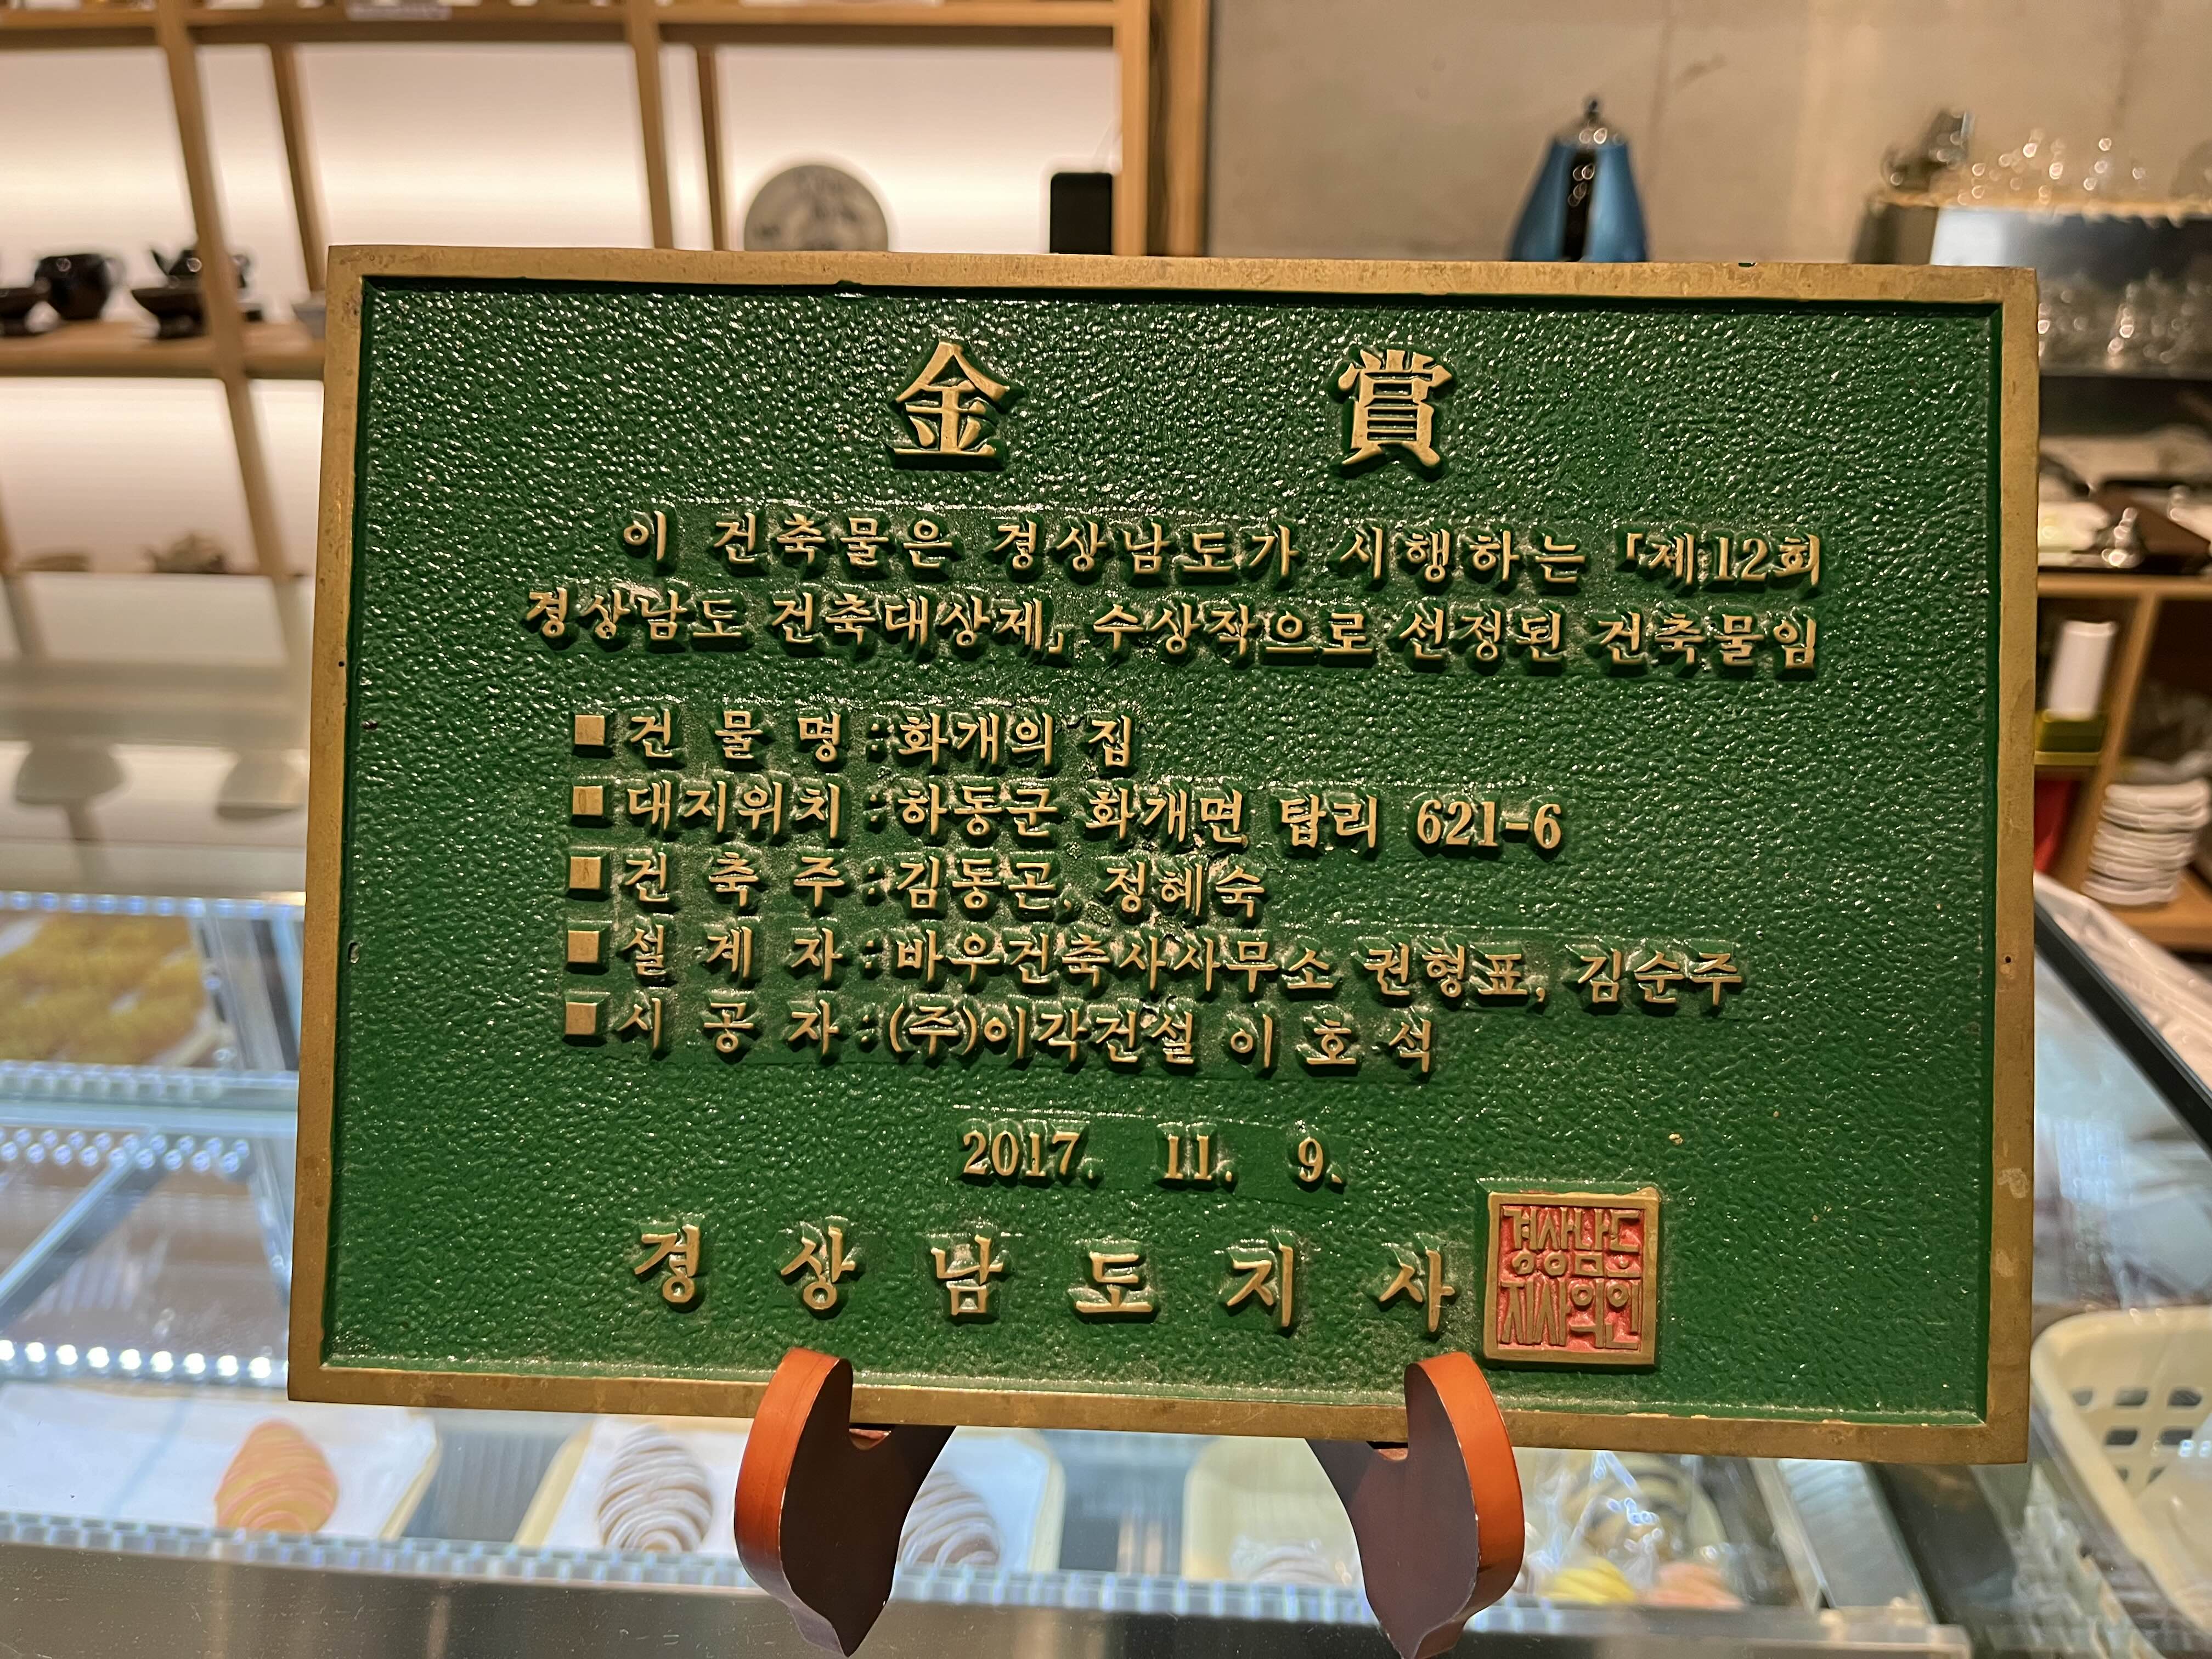 金 賞
이 건축물은 경상남도가 시행하는 「제12회
경상남도 건축대상제」 수상작으로 선정된 건축물임
■ 건 물 명 : 화개의 집
■ 대지위치 : 하동군 화개면 탑리 621-6
■ 건 축 주 : 김동곤, 정혜숙
■ 설 계 자 : 바우건축사사무소 권형표, 김순주
■ 시 공 자 : (주)이각건설 이 호 석
2017. 11. 9.
경 상 남 도 지 사
경상남도
지사의인